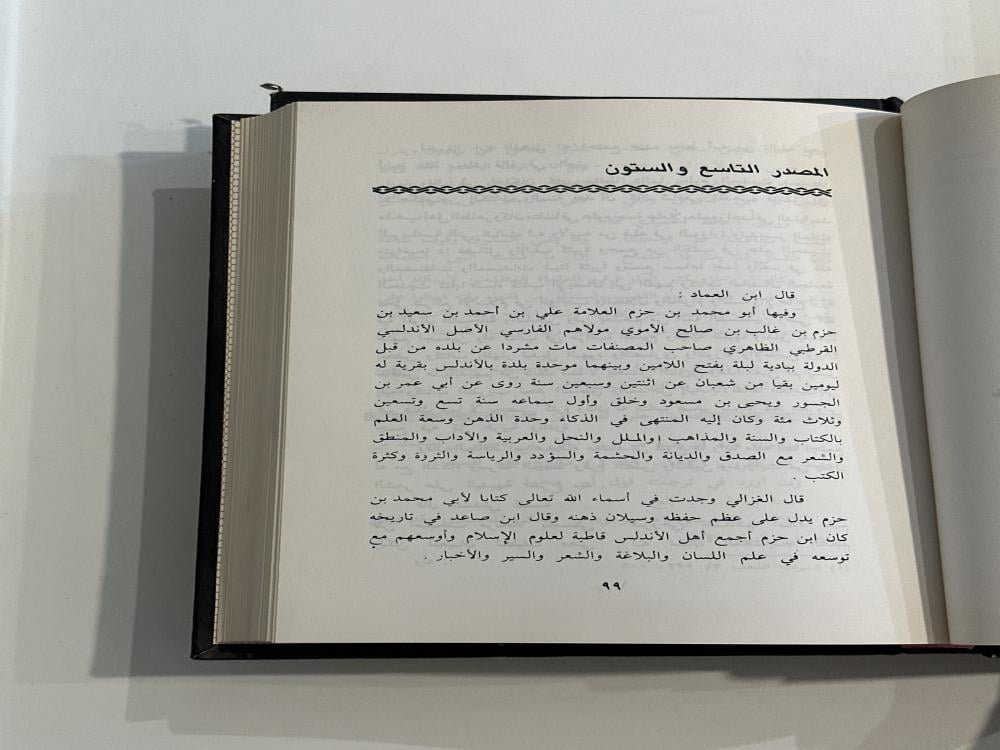 المصدر التاسع والستون
قال ابن العماد :
وفيها أبو محمد بن حزم العلامة علي بن أحمد بن سعيد بن
حزم بن غالب بن صالح الأموي مولاهم الفارسي الأصل الأندلسي
القرطبي الظاهري صاحب المصنفات مات مشردا عن بلده من قبل
الدولة ببادية لبلة بفتح اللامين وبينهما موحدة بلدة بالأندلس بقرية له
ليومين بقيا من شعبان عن اثنتين وسبعين سنة روى عن أبي عمر بن
الجسور ويحيى بن مسعود وخلق وأول سماعه سنة تسع وتسعين
وثلاث مئة وكان إليه المنتهى في الذكاء وحدة الذهن وسعة العلم
بالكتاب والسنة والمذاهب والملل والنحل والعربية والآداب والمنطق
والشعر مع الصدق والديانة والحشمة والسؤدد والرياسة والثروة وكثرة
الكتب .
قال الغزالي وجدت في أسماء الله تعالى كتابا لأبي محمد بن
حزم يدل على عظم حفظه وسيلان ذهنه وقال ابن صاعد في تاريخه
كان ابن حزم أجمع أهل الأندلس قاطبة لعلوم الإسلام وأوسعهم مع
توسعه في علم اللسان والبلاغة والشعر والسير والأخبار .
٩٩